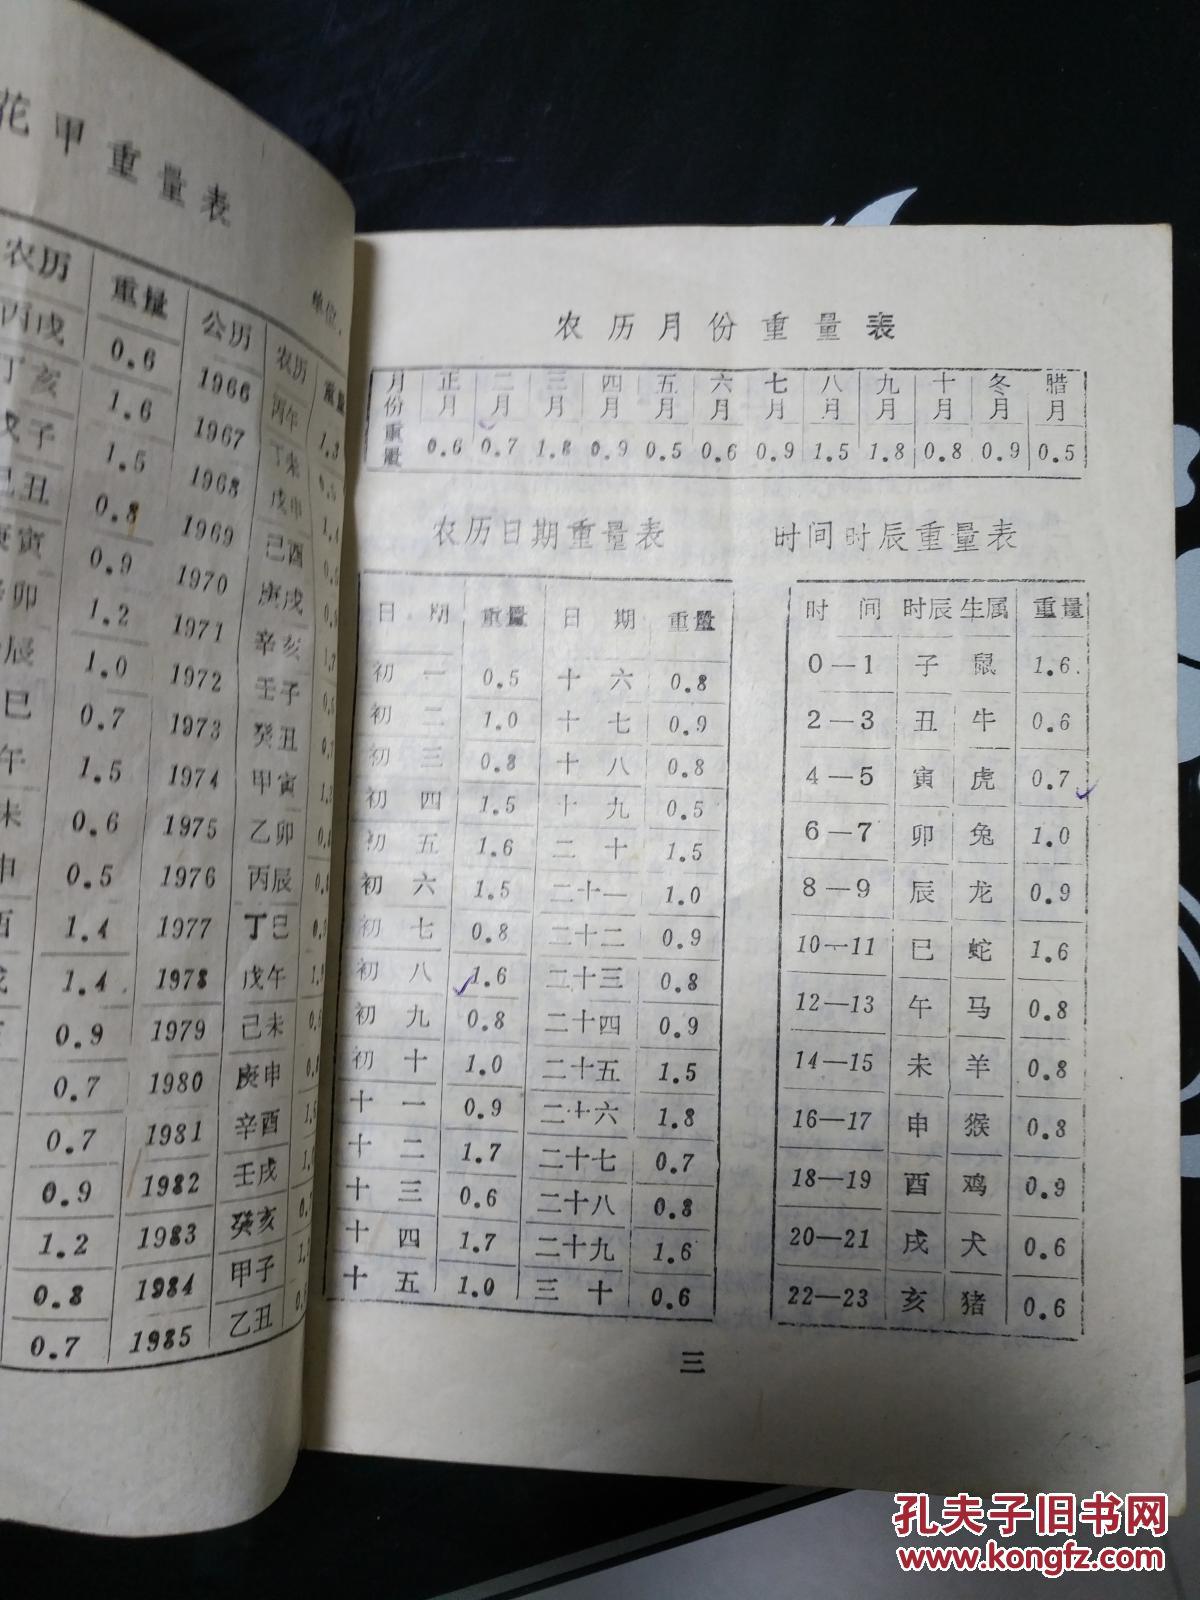 花甲重量表
单位
农历 重量 公历 农历 重量
丙戌 0.6 1966 丙午 1.3
丁亥 1.6 1967 丁未
戊子 1.5 1968 戊申 1.4
己丑 0.8 1969 己酉
庚寅 0.9 1970 庚戌
卯 1.2 1971 辛亥
辰 1.0 1972 壬子
巳 0.7 1973 癸丑
午 1.5 1974 甲寅
未 0.6 1975 乙卯
申 0.5 1976 丙辰
酉 1.4 1977 丁巳
戌 1.4 1978 戊午
0.9 1979 己未
0.7 1980 庚申
0.7 1981 辛酉
0.9 1982 壬戌
1.2 1983 癸亥
0.8 1984 甲子
0.7 1985 乙丑
农历月份重量表
月份 正月 二月 三月 四月 五月 六月 七月 八月 九月 十月 冬月 腊月
重量 0.6 0.7 1.8 0.9 0.5 0.6 0.9 1.5 1.8 0.8 0.9 0.5
农历日期重量表
日期 重量 日期 重量
初一 0.5 十六 0.8
初二 1.0 十七 0.9
初三 0.8 十八 0.8
初四 1.5 十九 0.5
初五 1.6 二十 1.5
初六 1.5 二十一 1.0
初七 0.8 二十二 0.9
初八 1.6 二十三 0.8
初九 0.8 二十四 0.9
初十 1.0 二十五 1.5
十一 0.9 二十六 1.8
十二 1.7 二十七 0.7
十三 0.6 二十八 0.8
十四 1.7 二十九 1.6
十五 1.0 三十 0.6
时间时辰重量表
时间 时辰 生属 重量
0—1 子 鼠 1.6
2—3 丑 牛 0.6
4—5 寅 虎 0.7
6—7 卯 兔 1.0
8—9 辰 龙 0.9
10—11 巳 蛇 1.6
12—13 午 马 0.8
14—15 未 羊 0.8
16—17 申 猴 0.8
18—19 酉 鸡 0.9
20—21 戌 犬 0.6
22—23 亥 猪 0.6
三
孔夫子旧书网
www.kongfz.com